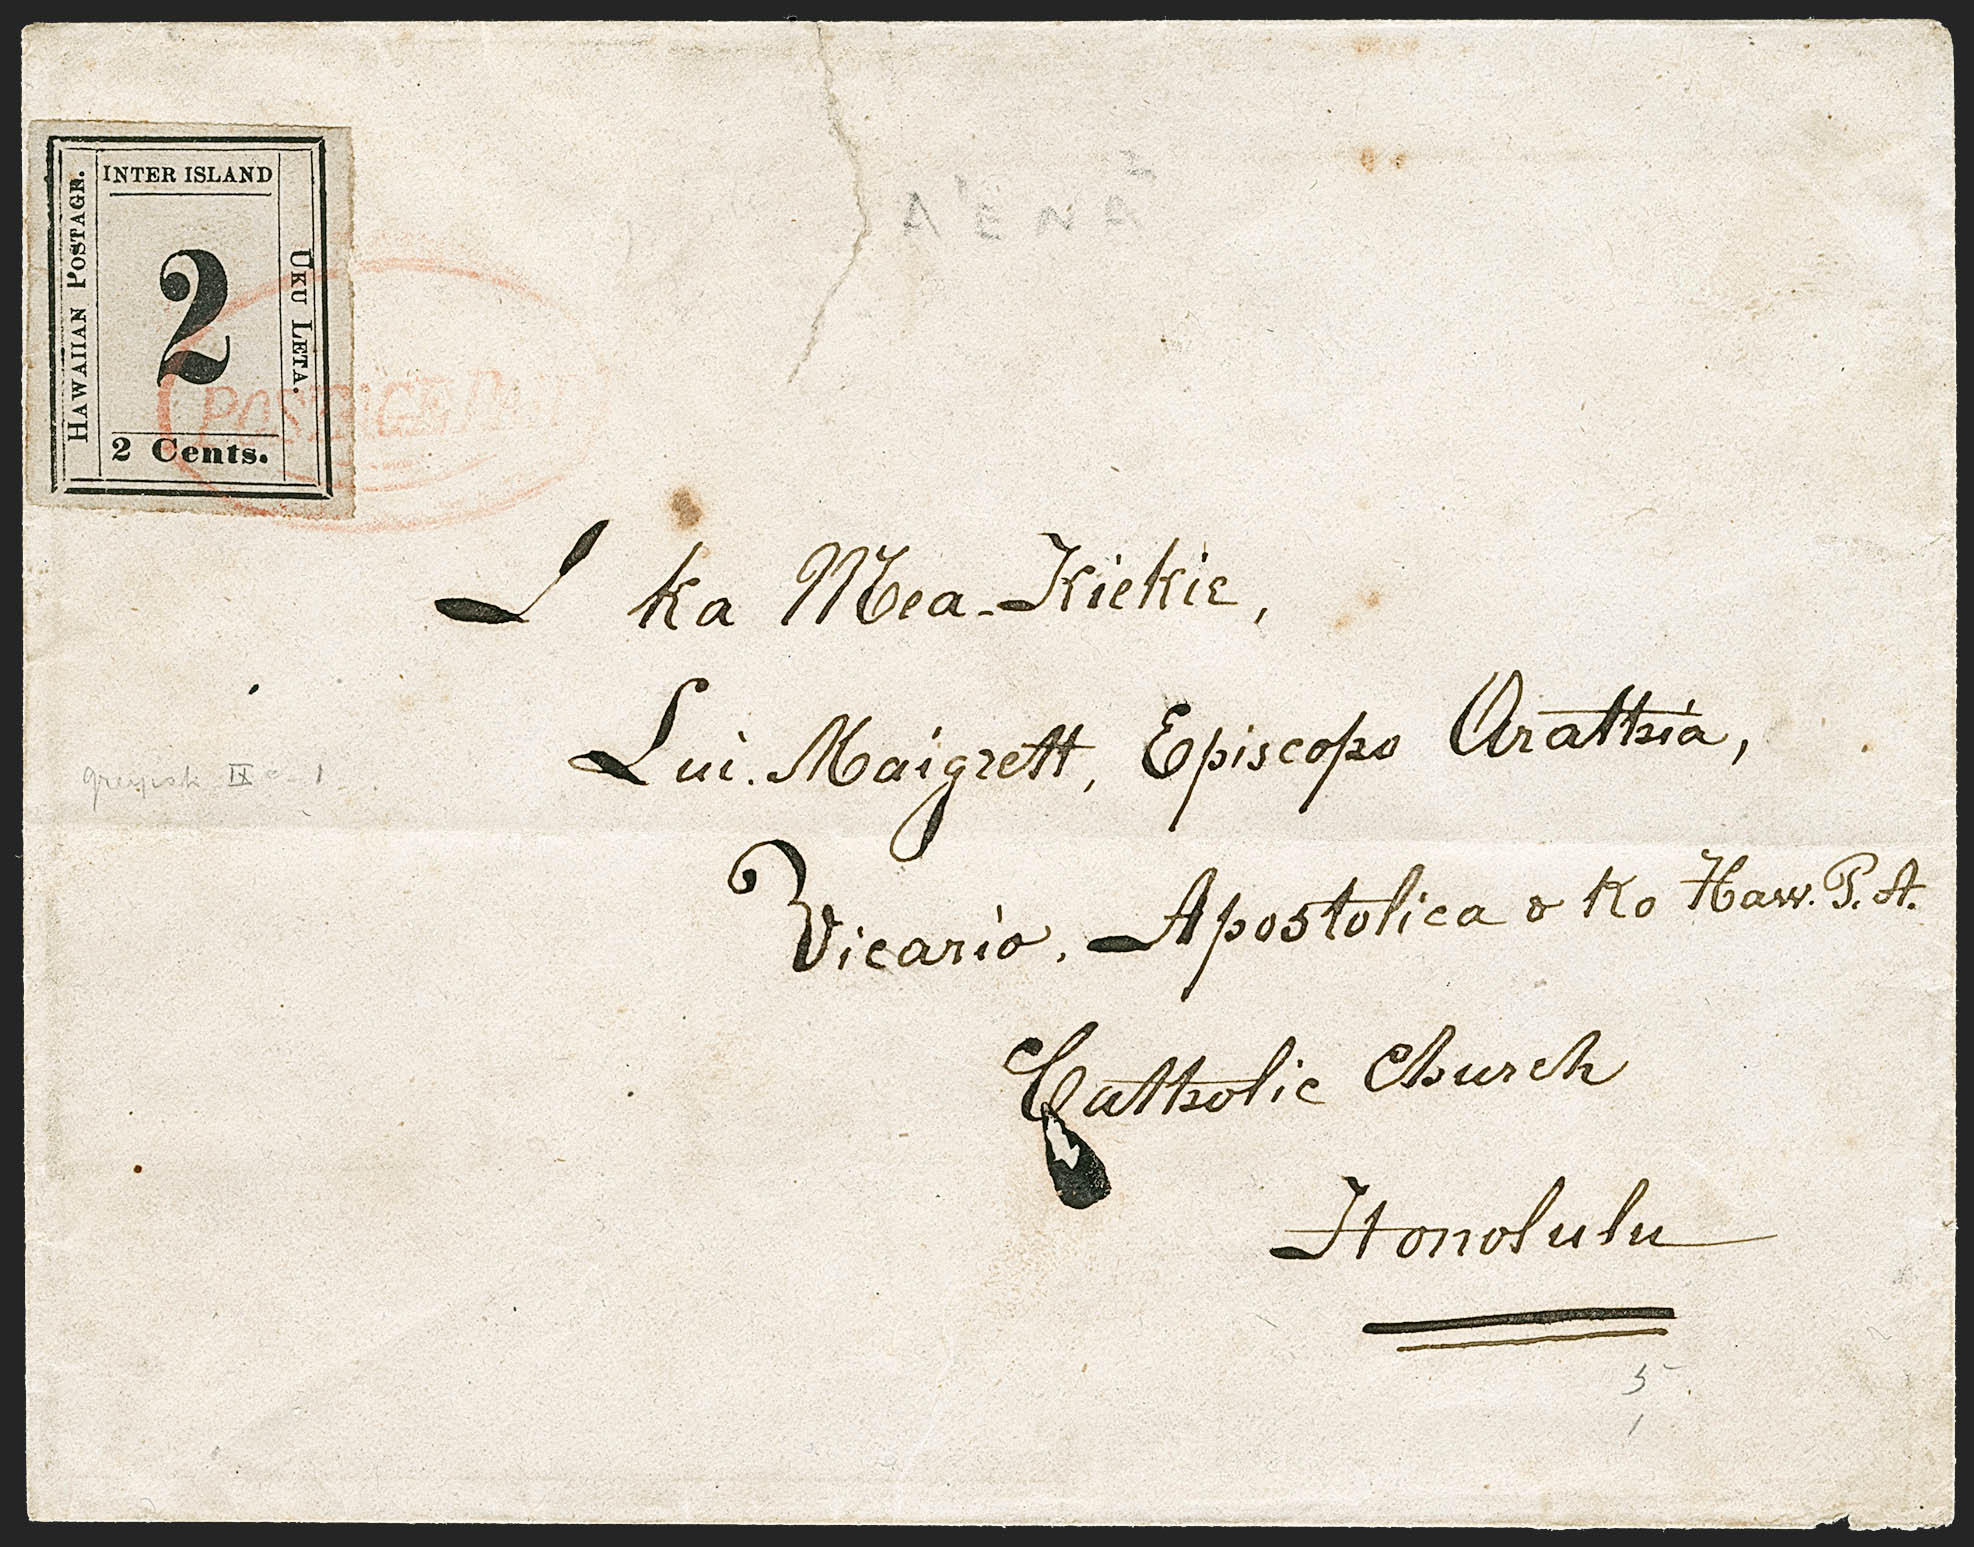 INTER ISLAND
HAWAIIAN POSTAGE.
UKU LETA.
2
2 Cents.
POSTAGE Paid
I ka Mea-Kiekie,
Lui. Maigrett, Episcopo Arathia,
Vicario. Apostolica o Ko Haw. P. A.
Catholic Church
Honolulu
5